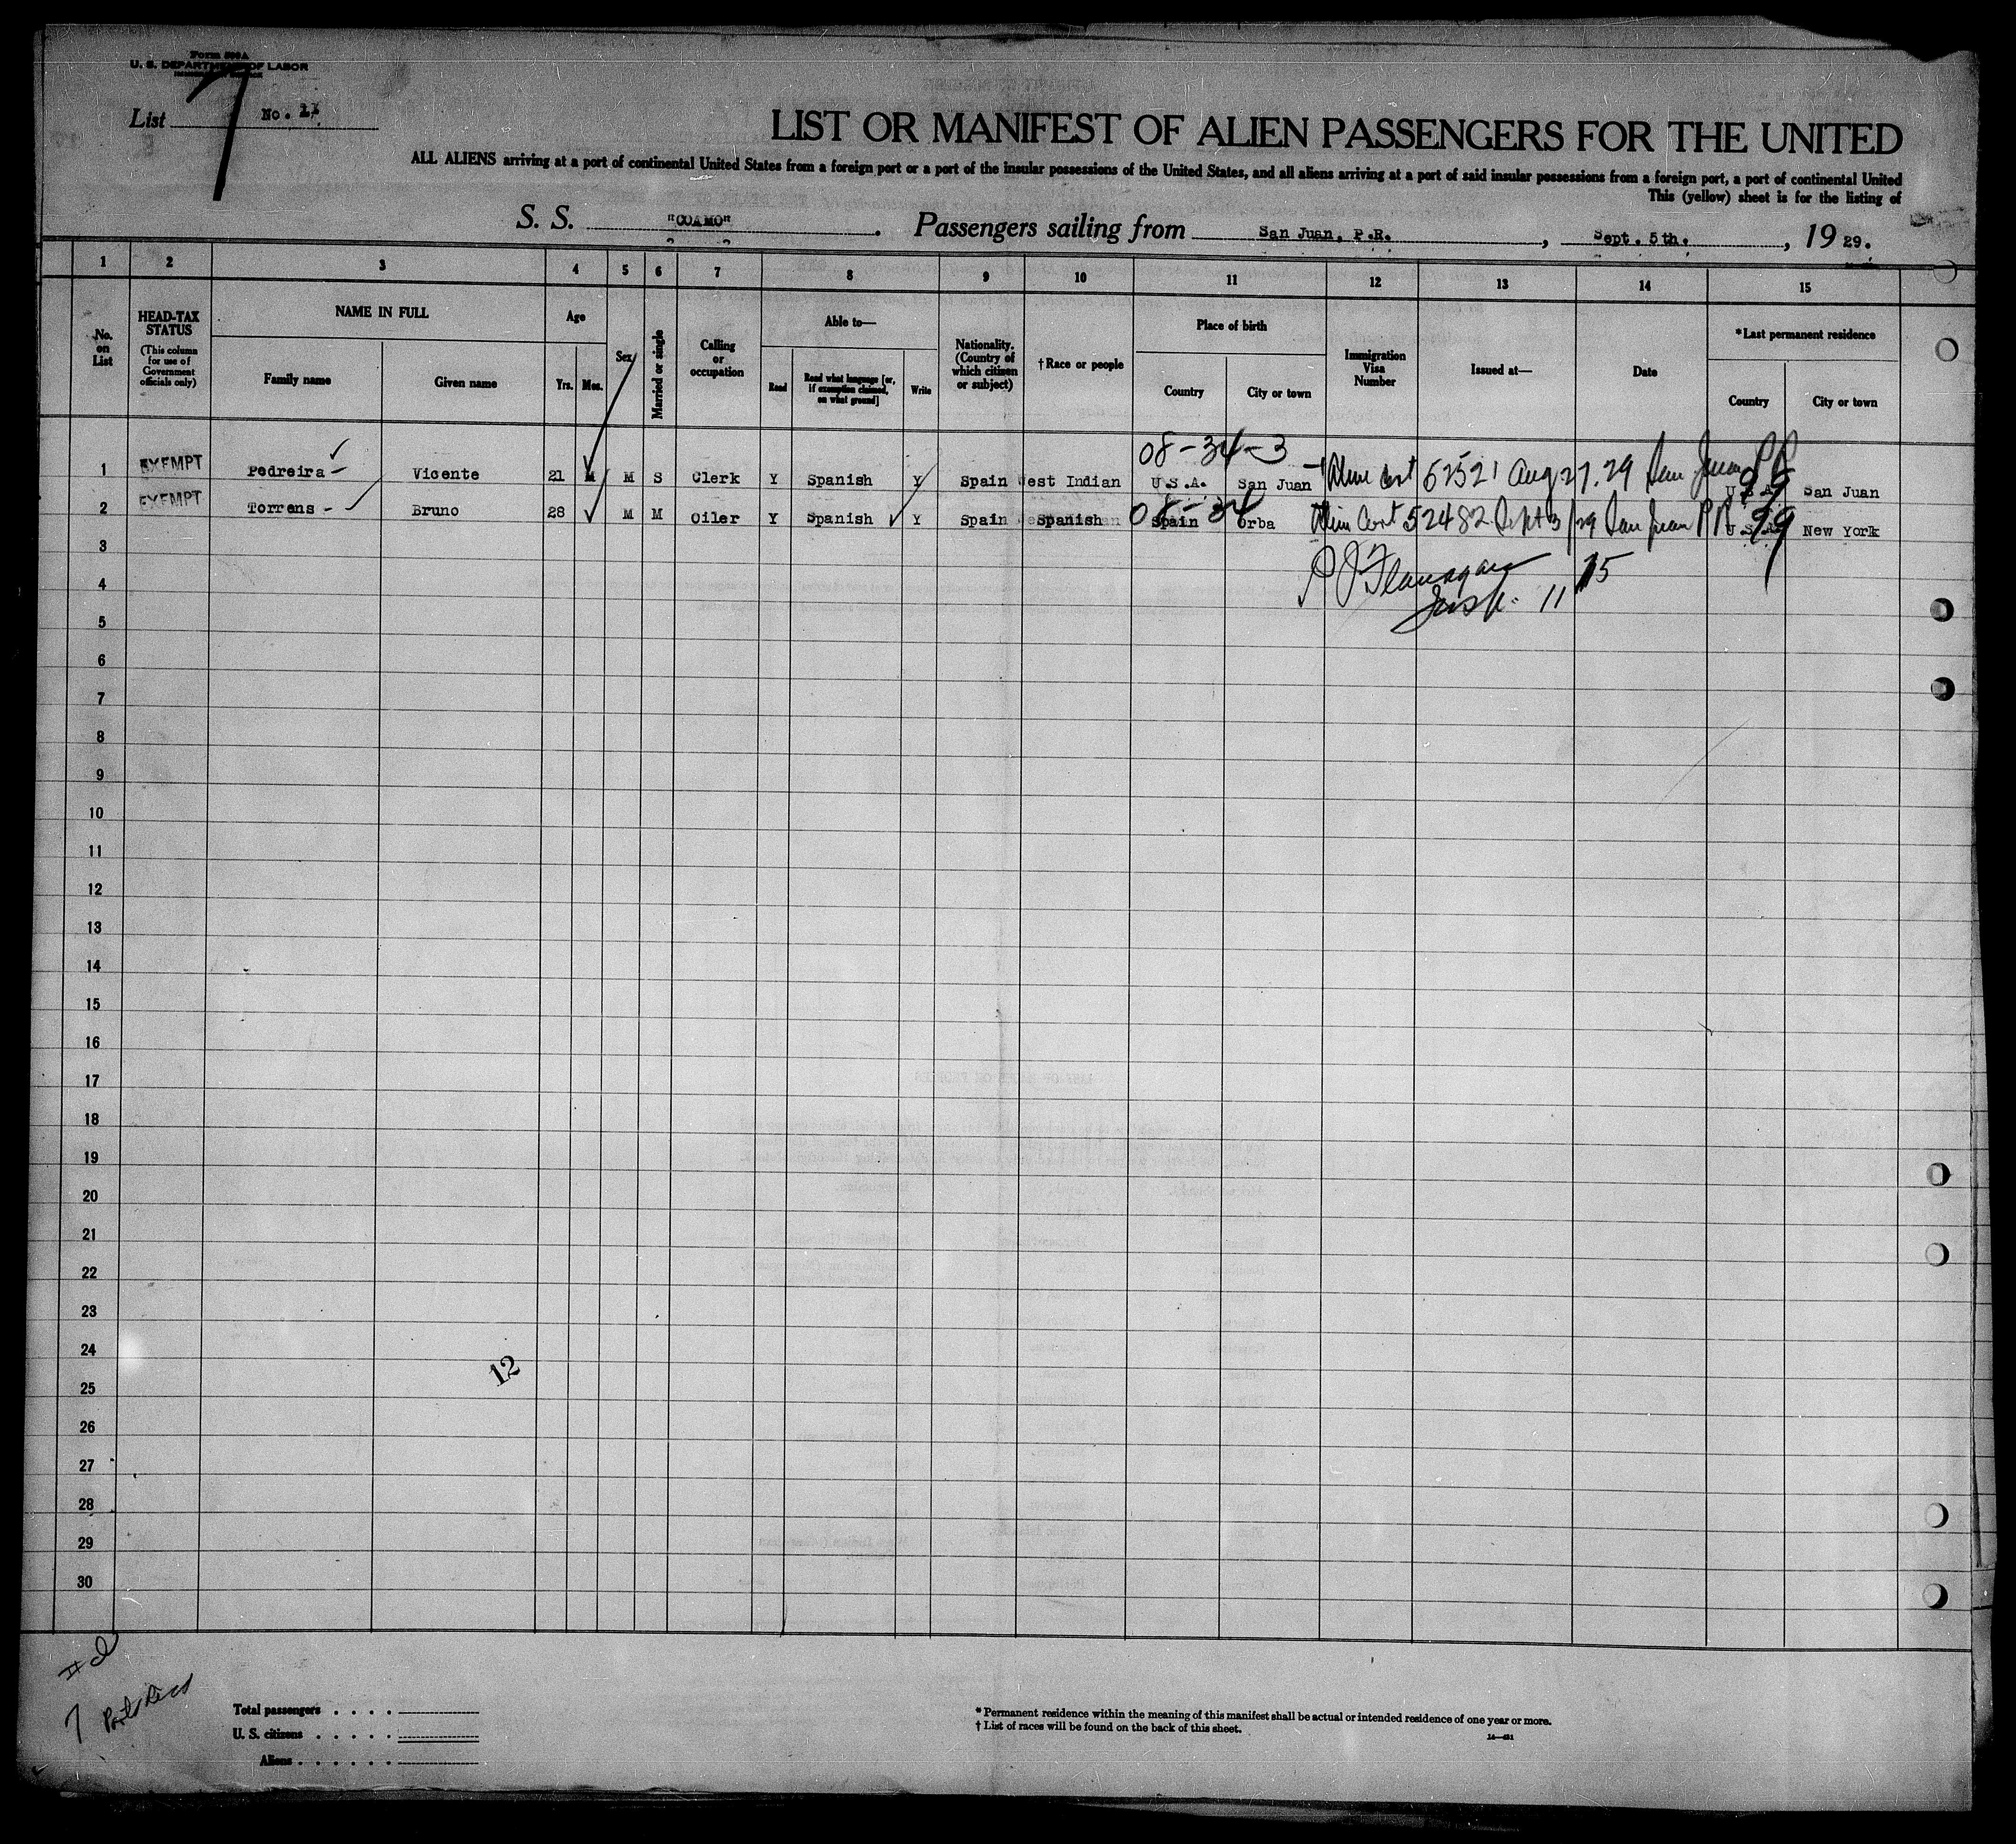 Form 500A
U. S. DEPARTMENT OF LABOR
List 7 No. 11
LIST OR MANIFEST OF ALIEN PASSENGERS FOR THE UNITED
ALL ALIENS arriving at a port of continental United States from a foreign port or a port of the insular possessions of the United States, and all aliens arriving at a port of said insular possessions from a foreign port, a port of continental United
This (yellow) sheet is for the listing of
S. S. "COAMO". Passengers sailing from San Juan, P.R., Sept. 5th., 1929.
1 2 3 4 5 6 7 8 9 10 11 12 13 14 15
No. on List
HEAD-TAX STATUS
(This column for use of Government officials only)
NAME IN FULL
Family name
Given name
Age
Yrs. Mos.
Sex
Married or single
Calling or occupation
Able to—
Read
Read what language [or, if exemption claimed, on what ground]
Write
Nationality. (Country of which citizen or subject)
†Race or people
Place of birth
Country
City or town
Immigration Visa Number
Issued at—
Date
*Last permanent residence
Country
City or town
08-34-3
1 EXEMPT Pedreira Vicente 21 M M S Clerk Y Spanish Y Spain West Indian U.S.A. San Juan Alien Cert 52521 Aug 27.29 San Juan PR U.S.A. 99 San Juan
08-34
2 EXEMPT Torrens Bruno 28 M M Oiler Y Spanish Y Spain Spanish Spain Orba Alien Cert 52482 Sept 3/29 San Juan PR U.S.A. 99 New York
3
Flanagan
4
Insp. 11 75
5
6
7
8
9
10
11
12
13
14
15
16
17
18
19
20
21
22
23
24
12
25
26
27
28
29
30
Total passengers
U. S. citizens
Aliens
* Permanent residence within the meaning of this manifest shall be actual or intended residence of one year or more.
† List of races will be found on the back of this sheet.